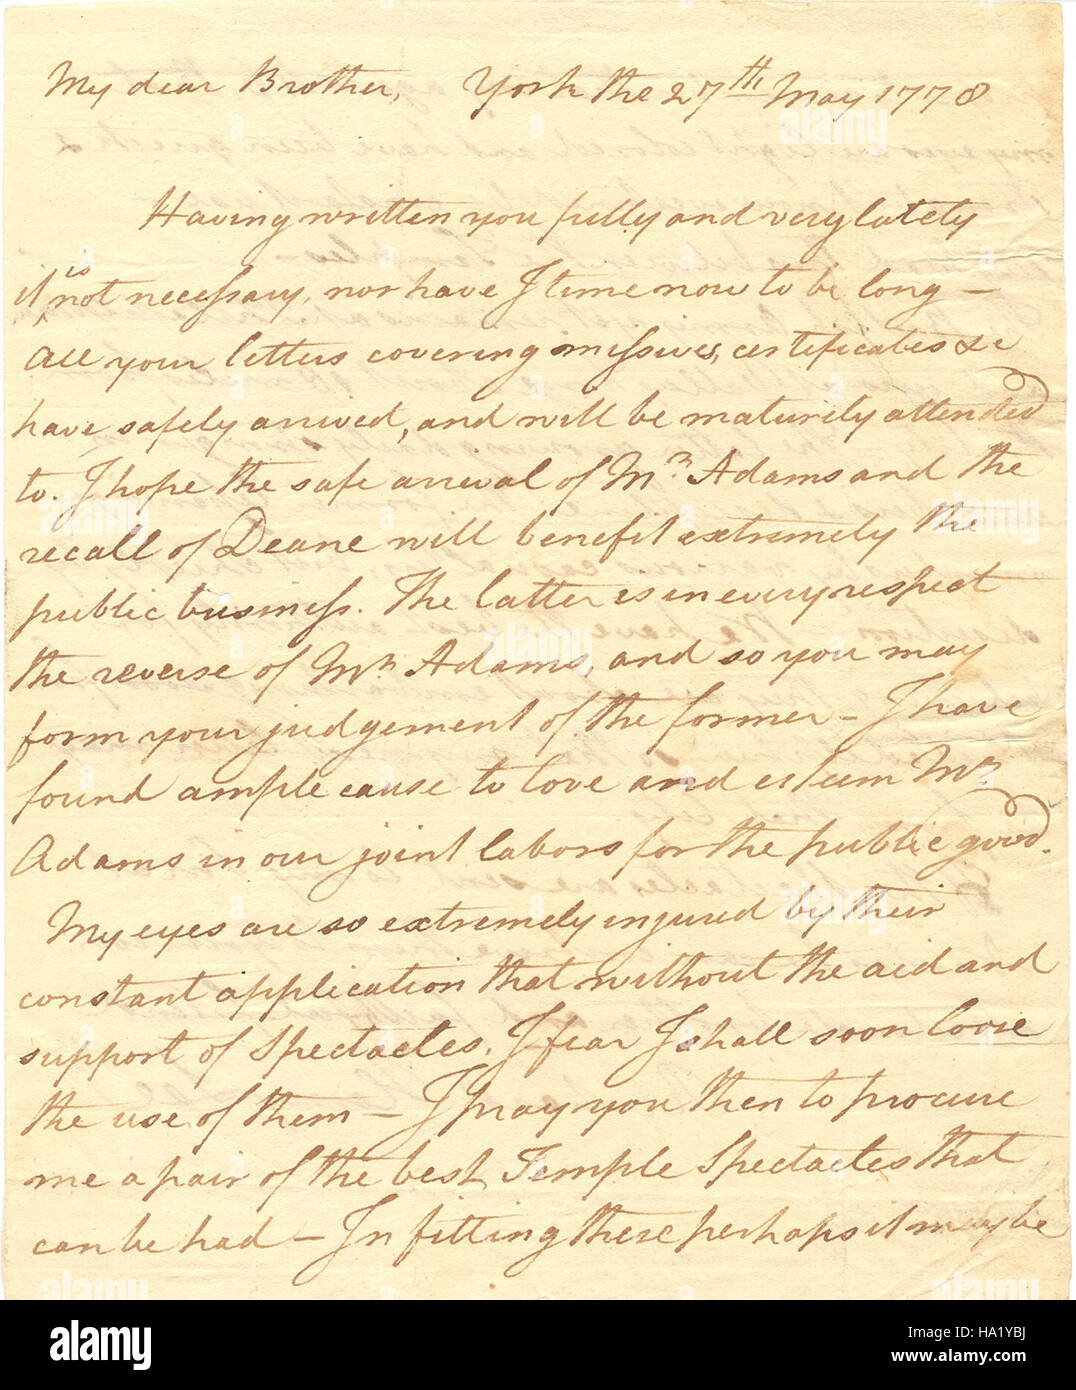 My dear Brother, York the 27th May 1778
Having written you fully and very lately
is
it not necessary, nor have I time now to be long —
^
All your letters covering missives, certificates &c
have safely arived, and will be maturely attended
to. I hope the safe arrival of Mr. Adams and the
recall of Deane will benefit extremely the
public business. The latter is in every respect
the reverse of Mr. Adams, and so you may
form your judgement of the former — I have
found ample cause to love and esteem Mr.
Adams in our joint labors for the public good.
My eyes are so extremely injured by their
constant application that without the aid and
support of Spectacles, I fear I shall soon loose
the use of them — I pray you then to procure
me a pair of the best Temple Spectacles that
can be had — In fitting these perhaps it may be
alamy
Image ID: HA1YBJ
www.alamy.com